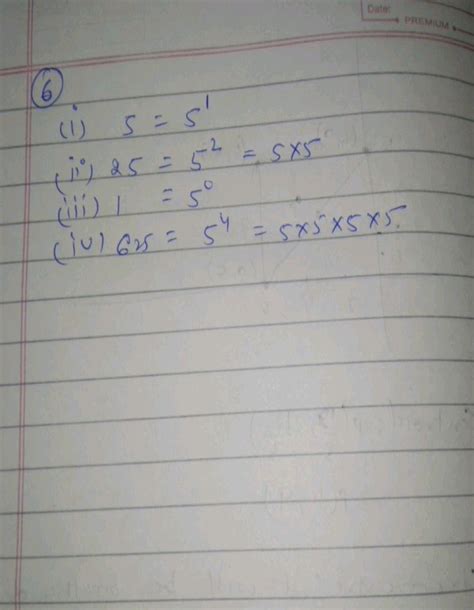 Date:
PREMIUM
6
(i) 5 = 5¹
(ii) 25 = 5² = 5×5
(iii) 1 = 5⁰
(iv) 625 = 5⁴ = 5×5×5×5.